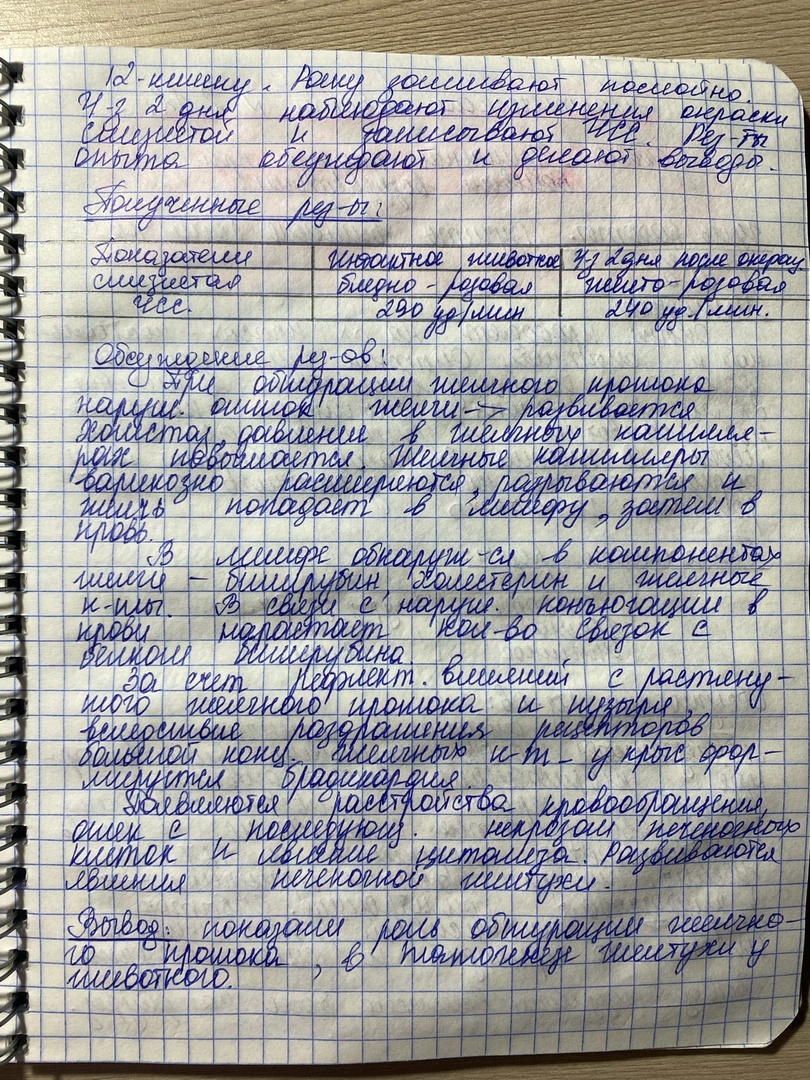 12-кишку. Рану зашивают послойно.
Ч-з 2 дня наблюдают изменения окраски
слизистой и записывают ЧСС. Рез-ты
опыта обсуждают и делают выводы.
Полученные рез-ы:
Показатели интактное животное Ч-з 2 дня после операц
слизистая бледно-розовая желто-розовая
ЧСС. 290 уд/мин 240 уд./мин.
Обсуждение рез-ов:
При обтурации желчного протока
наруш. отток желчи → развивается
холистаз, давление в желчных капилля-
рах повышается. Желчные капилляры
варикозно расширяются, разрываются и
желчь попадает в лимфу, затем в
кровь.
В лимфе обнаруж-ся в компонентах
желчи - билирубин, холестерин и желчные
к-ты. В связи с наруш. конъюгации в
крови нарастает кол-во связок с
белком билирубина.
За счет рефлект. влияний с растяну-
того желчного протока и пузыря,
вследствие раздражения рецепторов
большой конц. желчных к-т - у крыс фор-
мируется брадикардия.
Появляются расстройства кровообращения,
отек с последующ. некрозом печеночных
клеток и явление цитолиза. Развиваются
явления печеночной желтухи.
Вывод: показали роль обтурации желчно-
го протока, в патогенезе желтухи у
животного.